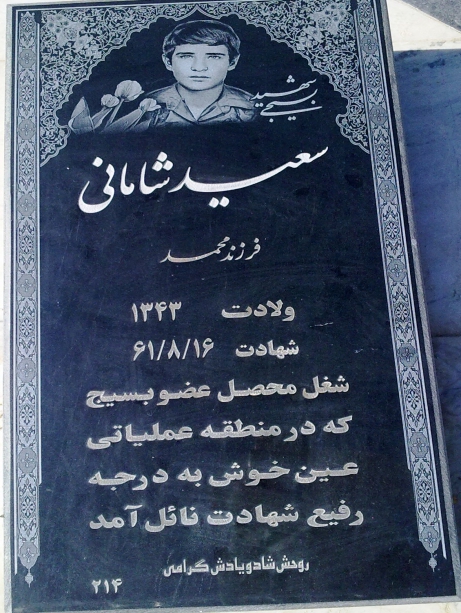 شهید
بسیجی
سعید شامانی
فرزند محمد
ولادت ۱۳۴۳
شهادت ۶۱/۸/۱۶
شغل محصل عضو بسیج
که در منطقه عملیاتی
عین خوش به درجه
رفیع شهادت نائل آمد
روحش شاد و یادش گرامی
۲۱۴